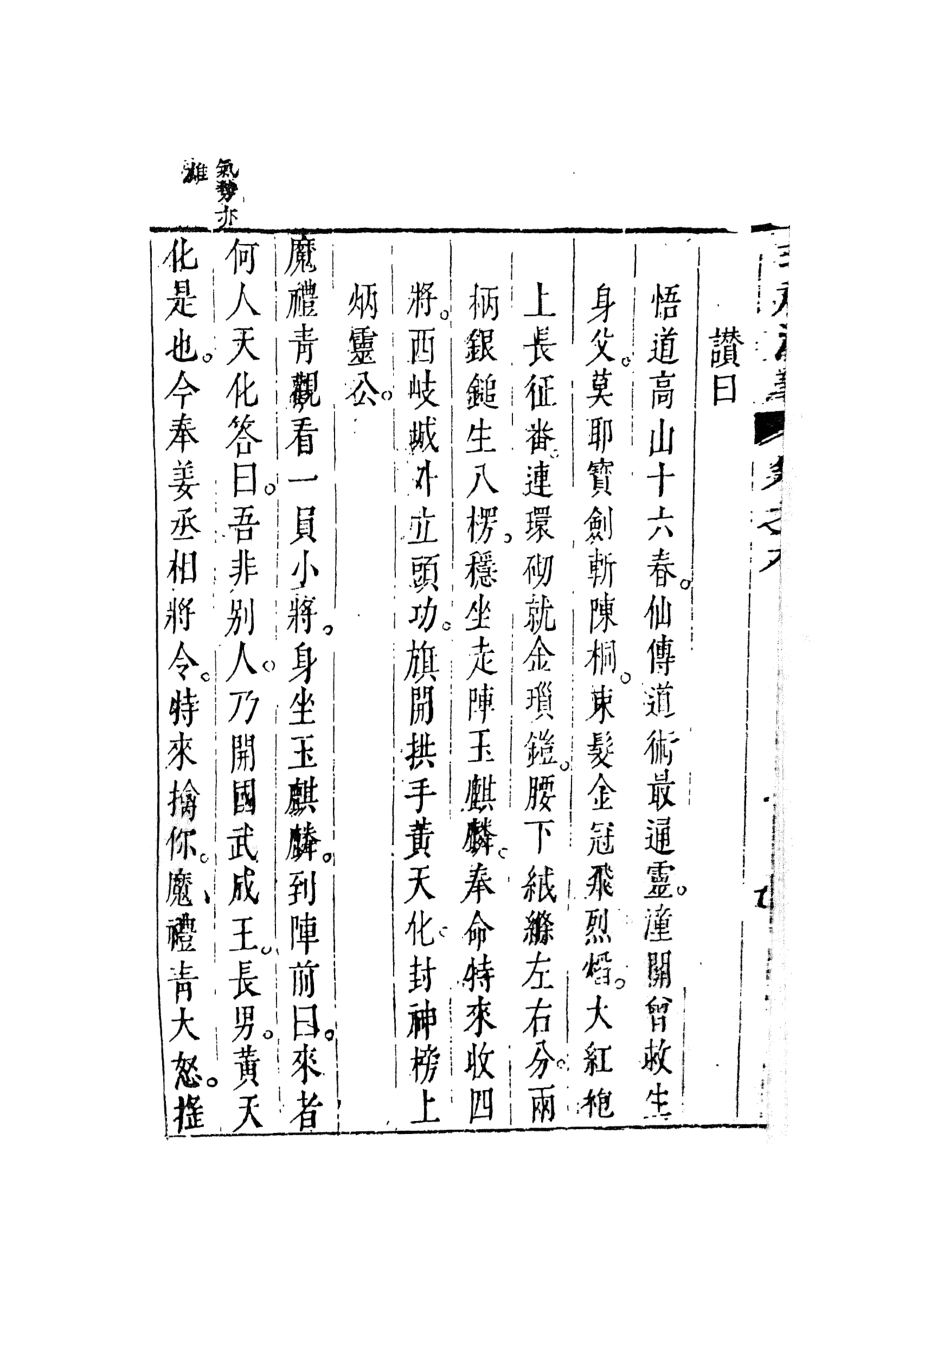 讚曰
悟道高山十六春。仙傳道術最通靈。潼關曾救生
身父。莫耶寶劍斬陳桐。束髮金冠飛烈焰。大紅袍
上長征番。連環砌就金瑣鎧。腰下絨縧左右分。兩
柄銀鎚生八楞。穩坐走陣玉麒麟。奉命特來收四
將。西岐城外立頭功。旗開拱手黃天化。封神榜上
炳靈公。
魔禮青觀看一員小將。身坐玉麒麟。到陣前曰。來者
何人天化答曰。吾非別人。乃開國武成王。長男。黃天
化是也。今奉姜丞相將令。特來擒你。魔、禮青大怒。搖
氣勢亦
雄